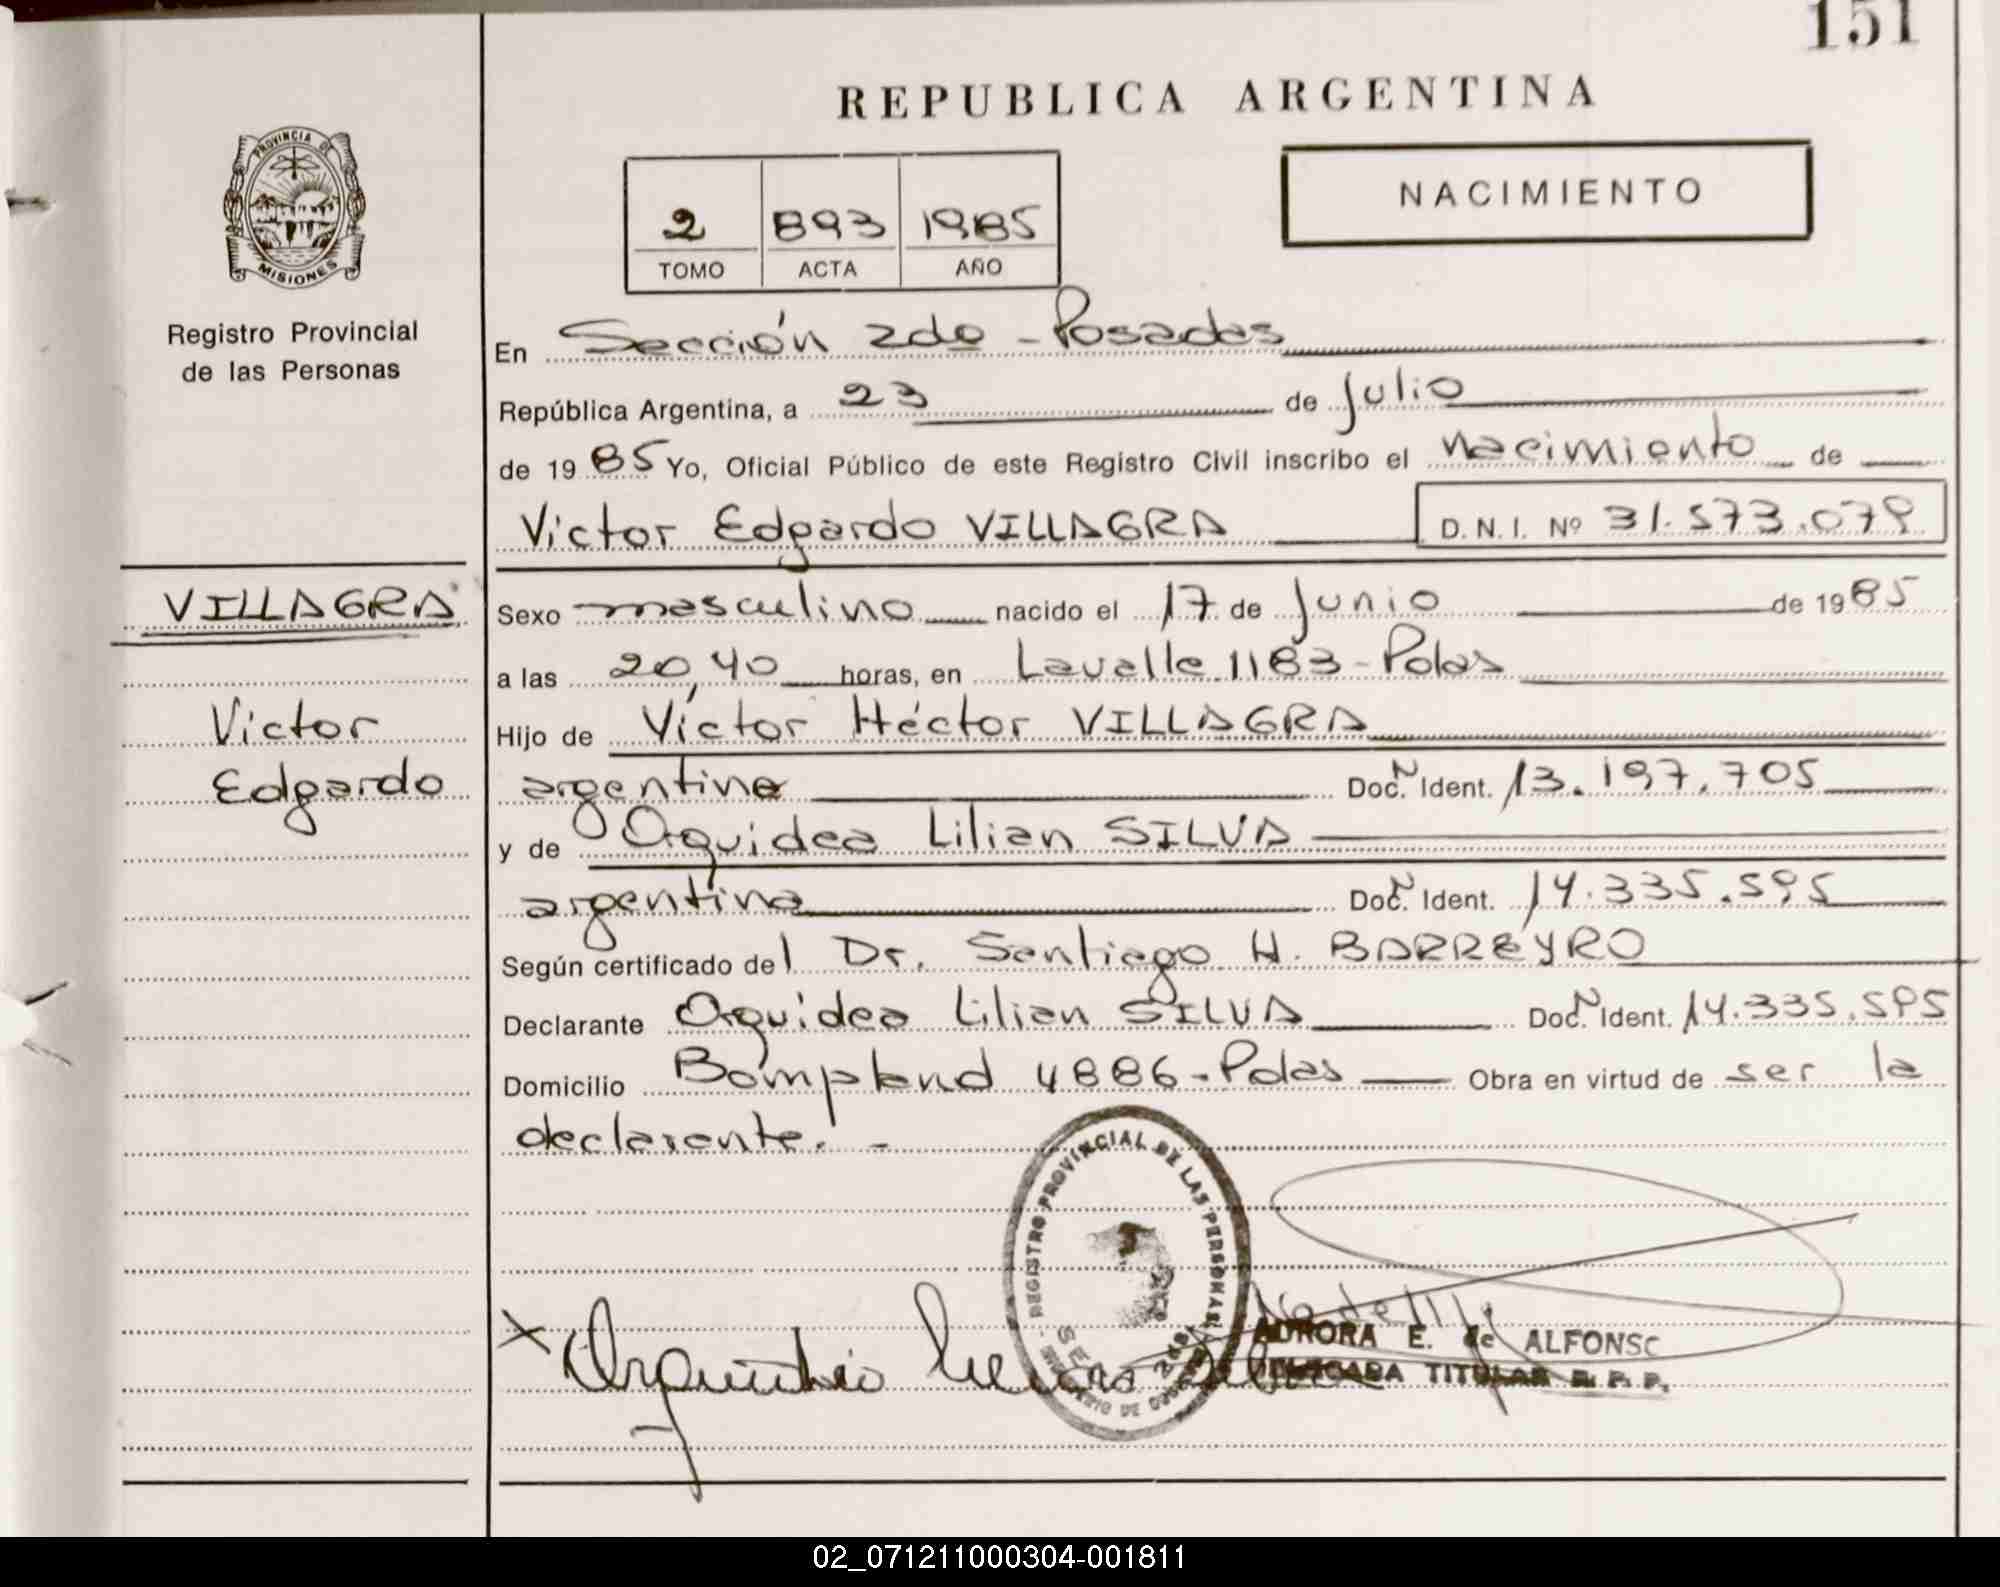 151
REPUBLICA ARGENTINA
NACIMIENTO
2 893 1985
TOMO ACTA AÑO
PROVINCIA DE
MISIONES
Registro Provincial
de las Personas
En Sección 2da - Posadas
República Argentina, a 23 de Julio
de 1985 Yo, Oficial Público de este Registro Civil inscribo el nacimiento de
Victor Edgardo VILLAGRA D.N.I. Nº 31.573.079
VILLAGRA
Victor
Edgardo
Sexo masculino nacido el 17 de Junio de 1985
a las 20,40 horas, en Lavalle 1183 - Pdas
Hijo de Víctor Héctor VILLAGRA
argentino Doc. N Ident. 13.197.705
y de Orquidea Lilian SILVA
argentina Doc. N Ident. 14.335.595
Según certificado del Dr. Santiago H. BARREYRO
Declarante Orquidea Lilian SILVA Doc. N Ident. 14.335.595
Domicilio Bompland 4886 - Pdas Obra en virtud de ser la
declarante. -
REGISTRO PROVINCIAL DE LAS PERSONAS
E. de ALFONSO
TITULAR R. P. P.
02_071211000304-001811